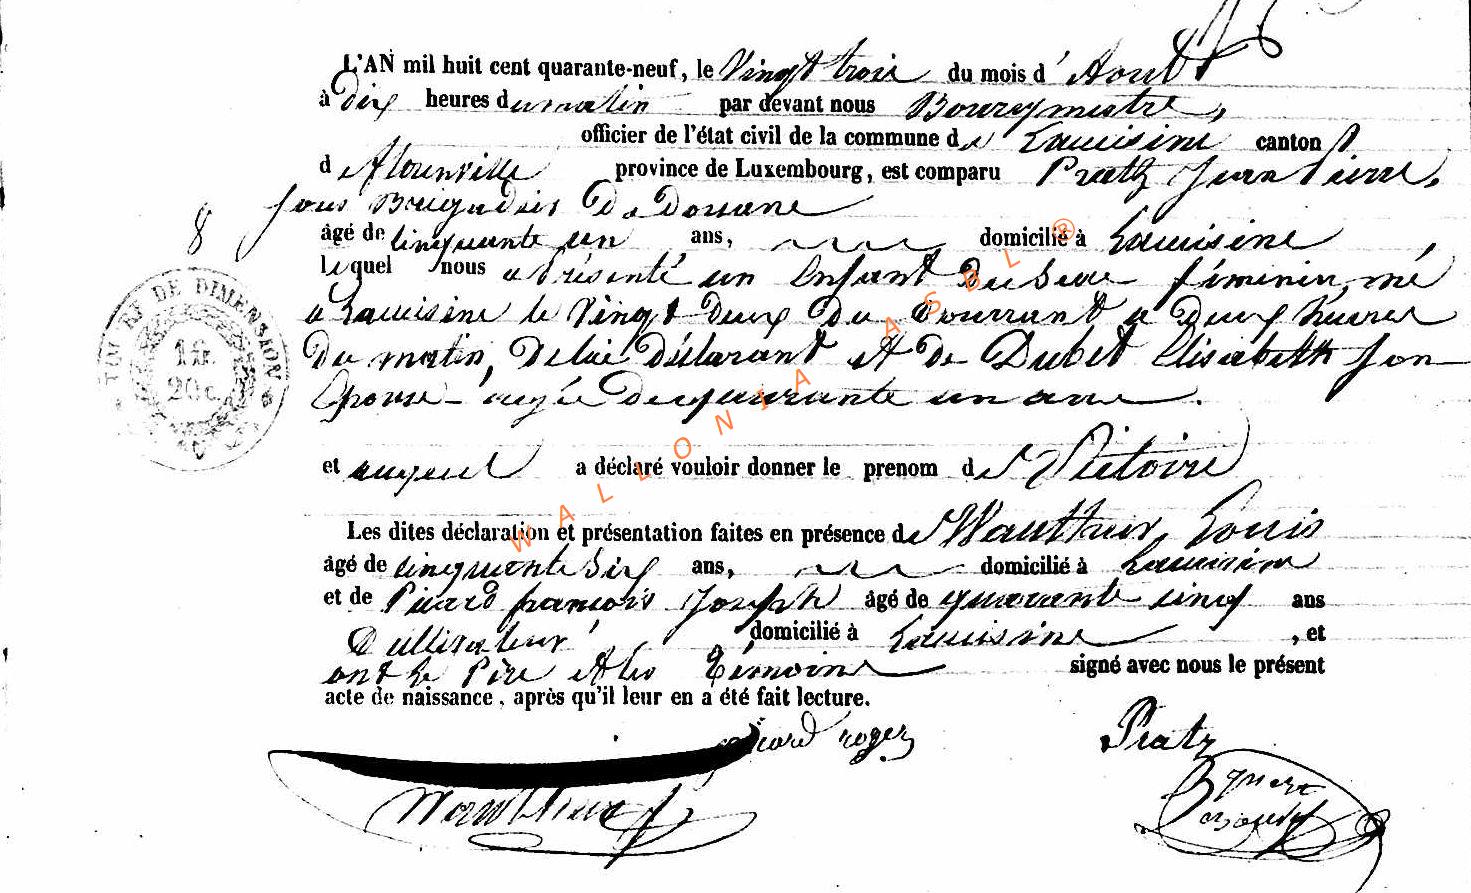 L'AN mil huit cent quarante-neuf, le Vingt trois du mois d'Aout
à dix heures du matin par devant nous Bourgmestre,
officier de l'état civil de la commune de Lacuisine canton
de Florenville province de Luxembourg, est comparu Pratz Jean Pierre,
sous Brigadier De Douane
8
âgé de Cinquante un ans, domicilié à Lacuisine,
lequel nous a Présenté un Enfant Du Sexe féminin, né
a Lacuisine le Vingt Deux Du Courrant a Deux heures
Du matin, De lui Déclarant Et De Dubet Elisabeth Son
Epouse - agée De quarante un ans.
TIMBRE DE DIMENSION
1 fr.
20 c.
et auquel a déclaré vouloir donner le prenom de Victoire
Les dites déclaration et présentation faites en présence de Wauthier, Louis
âgé de Cinquante Six ans, domicilié à Lacuisine
et de Picard françois Joseph âgé de quarante cinq ans
Cultivateur domicilié à Lacuisine, et
ont le Père Et les Témoins signé avec nous le présent
acte de naissance, après qu'il leur en a été fait lecture.
picard Pratz
Wauthier
WALLONIA ASBL ®